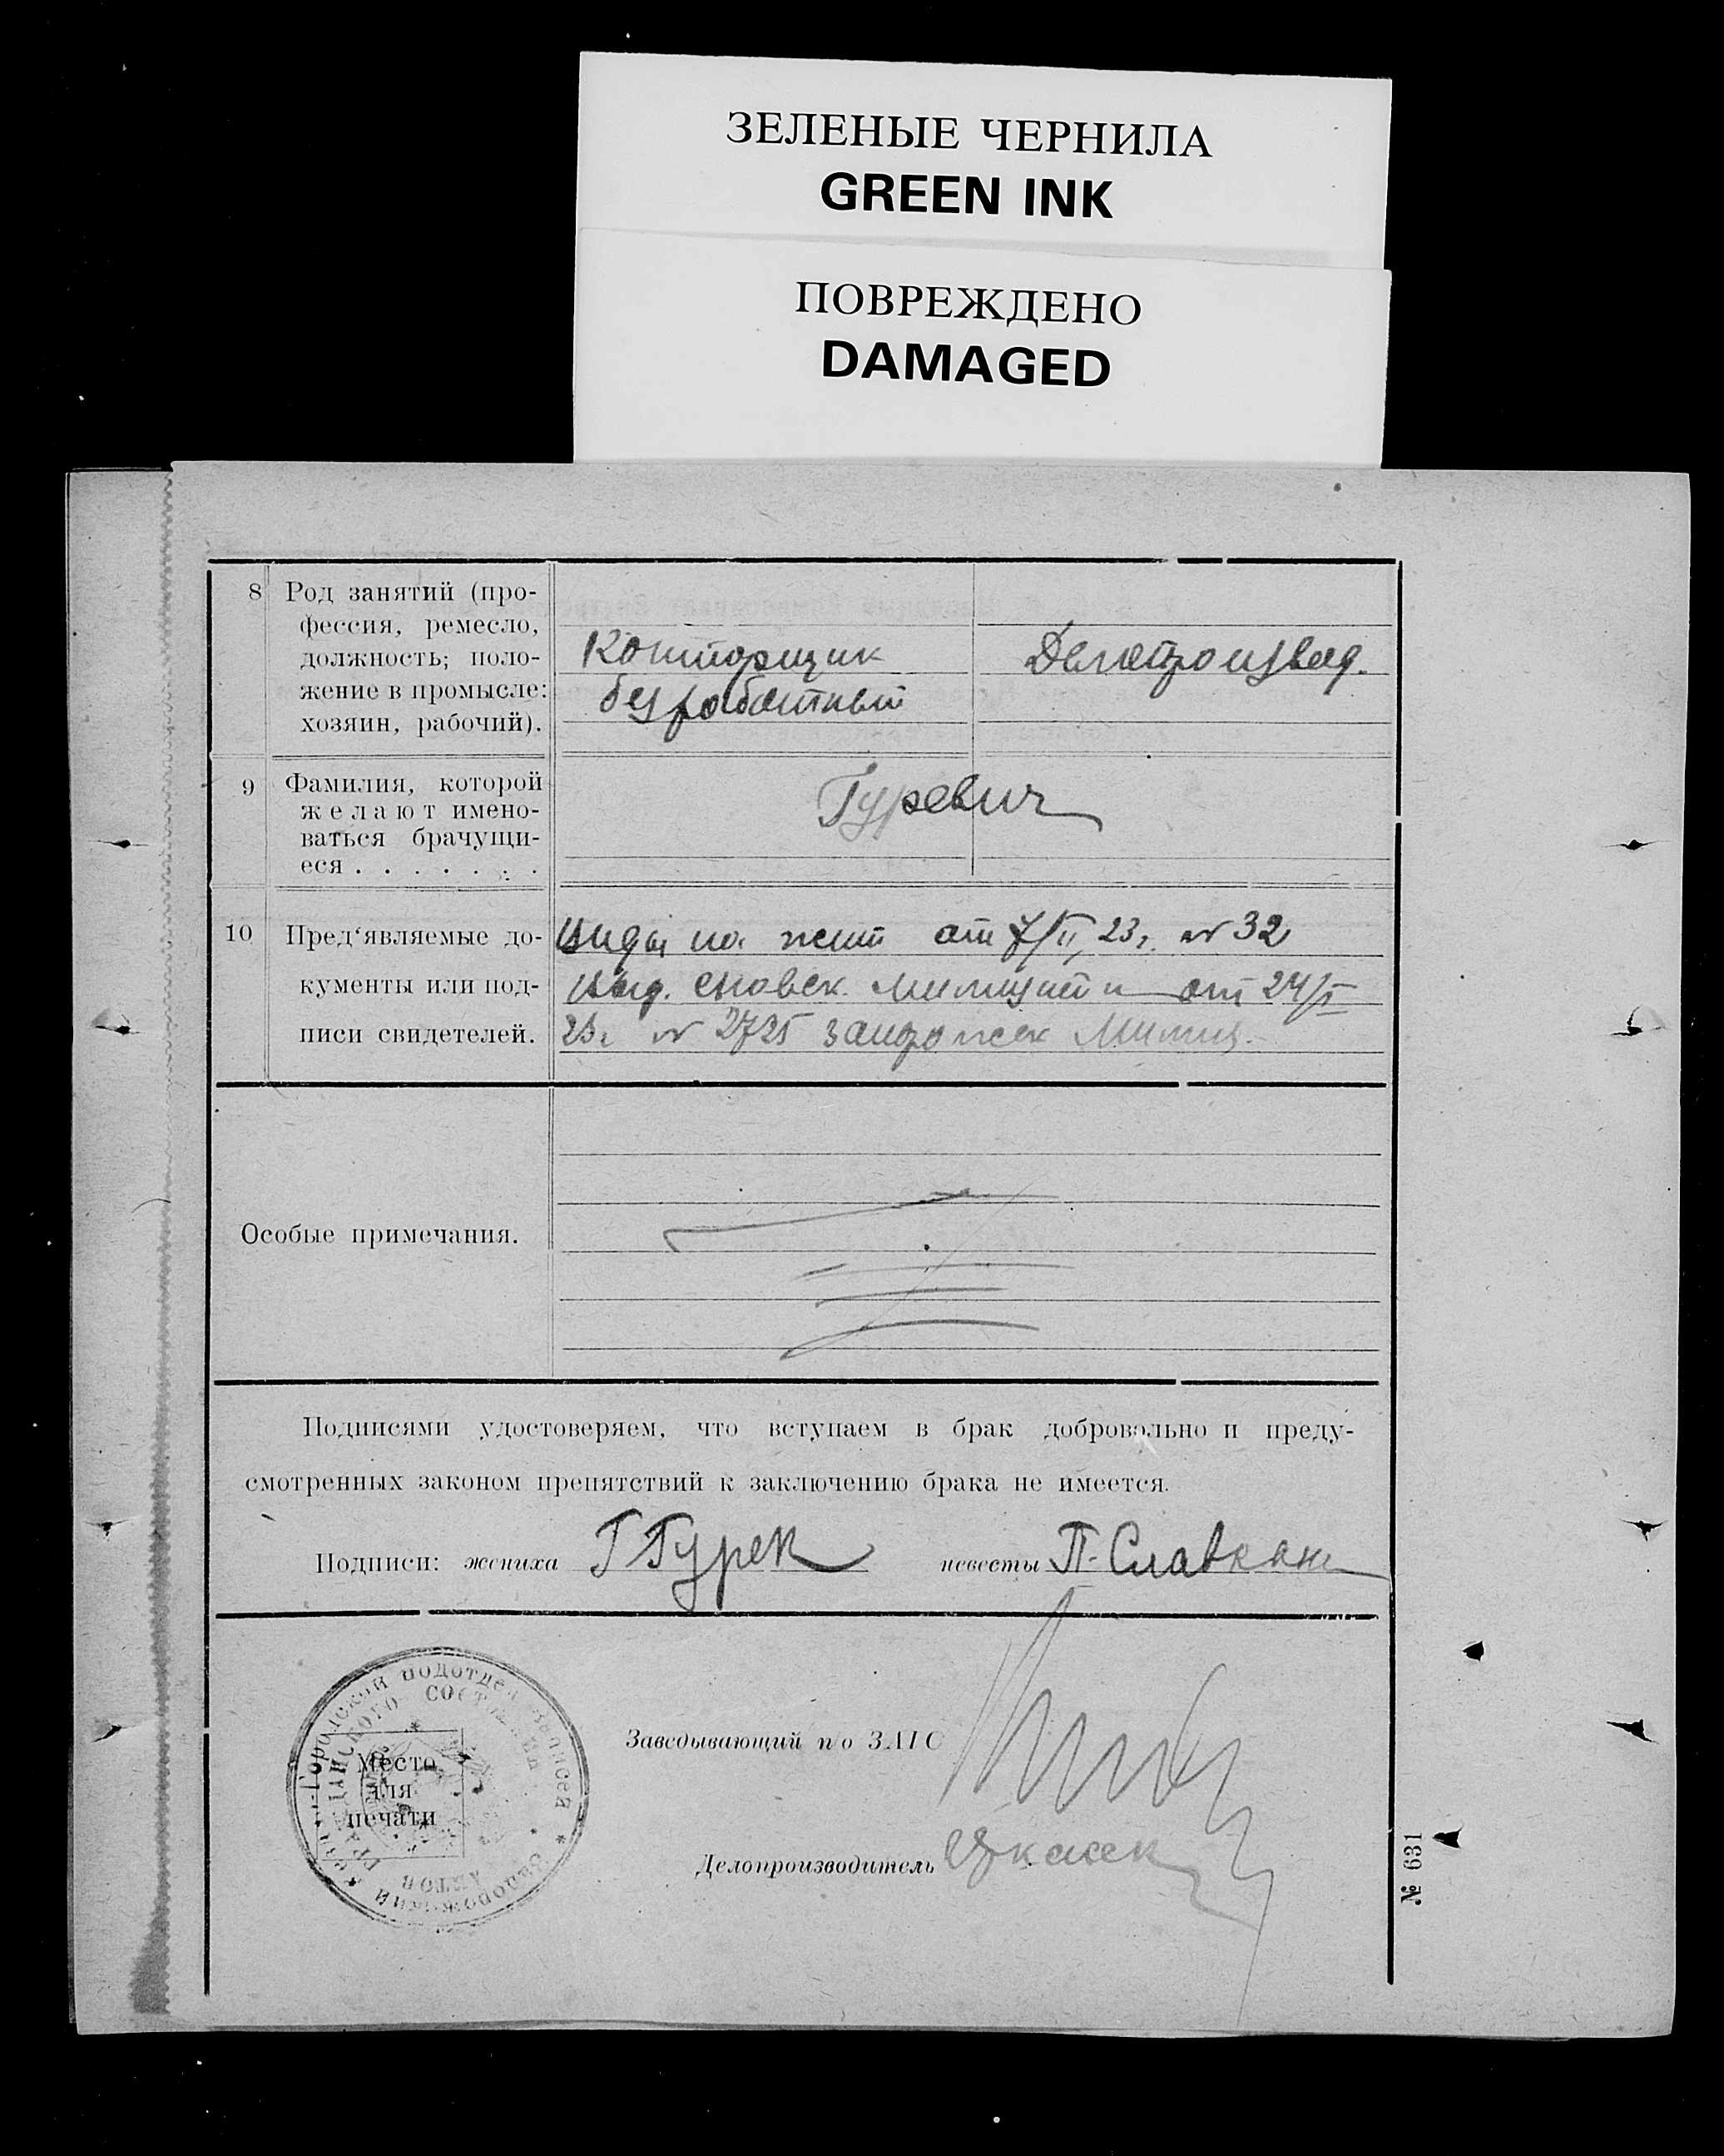 ЗЕЛЕНЫЕ ЧЕРНИЛА
GREEN INK
ПОВРЕЖДЕНО
DAMAGED
8 Род занятий (про-
фессия, ремесло,
должность; поло-
жение в промысле:
хозяин, рабочий).
Конторщик
безработный
Делопроизвод.
9 Фамилия, которой
желают имено-
ваться брачущи-
еся . . . . . . .
Гуревич
10 Пред‘являемые до-
кументы или под-
писи свидетелей.
Виды на жит от 7/II 23г. № 32
выд. сновск. милицией и от 24/I
23г № 2725 запорожск Милиц.
Особые примечания.
Подписями удостоверяем, что вступаем в брак добровольно и преду-
смотренных законом препятствий к заключению брака не имеется.
Подписи: жениха Г Гурев невесты П. Славкин
Городской подотдел записей * Запорожский
гражданского состояния
актов
Место
для
печати
Заведывающий п/о ЗАГС
Делопроизводитель
№ 631